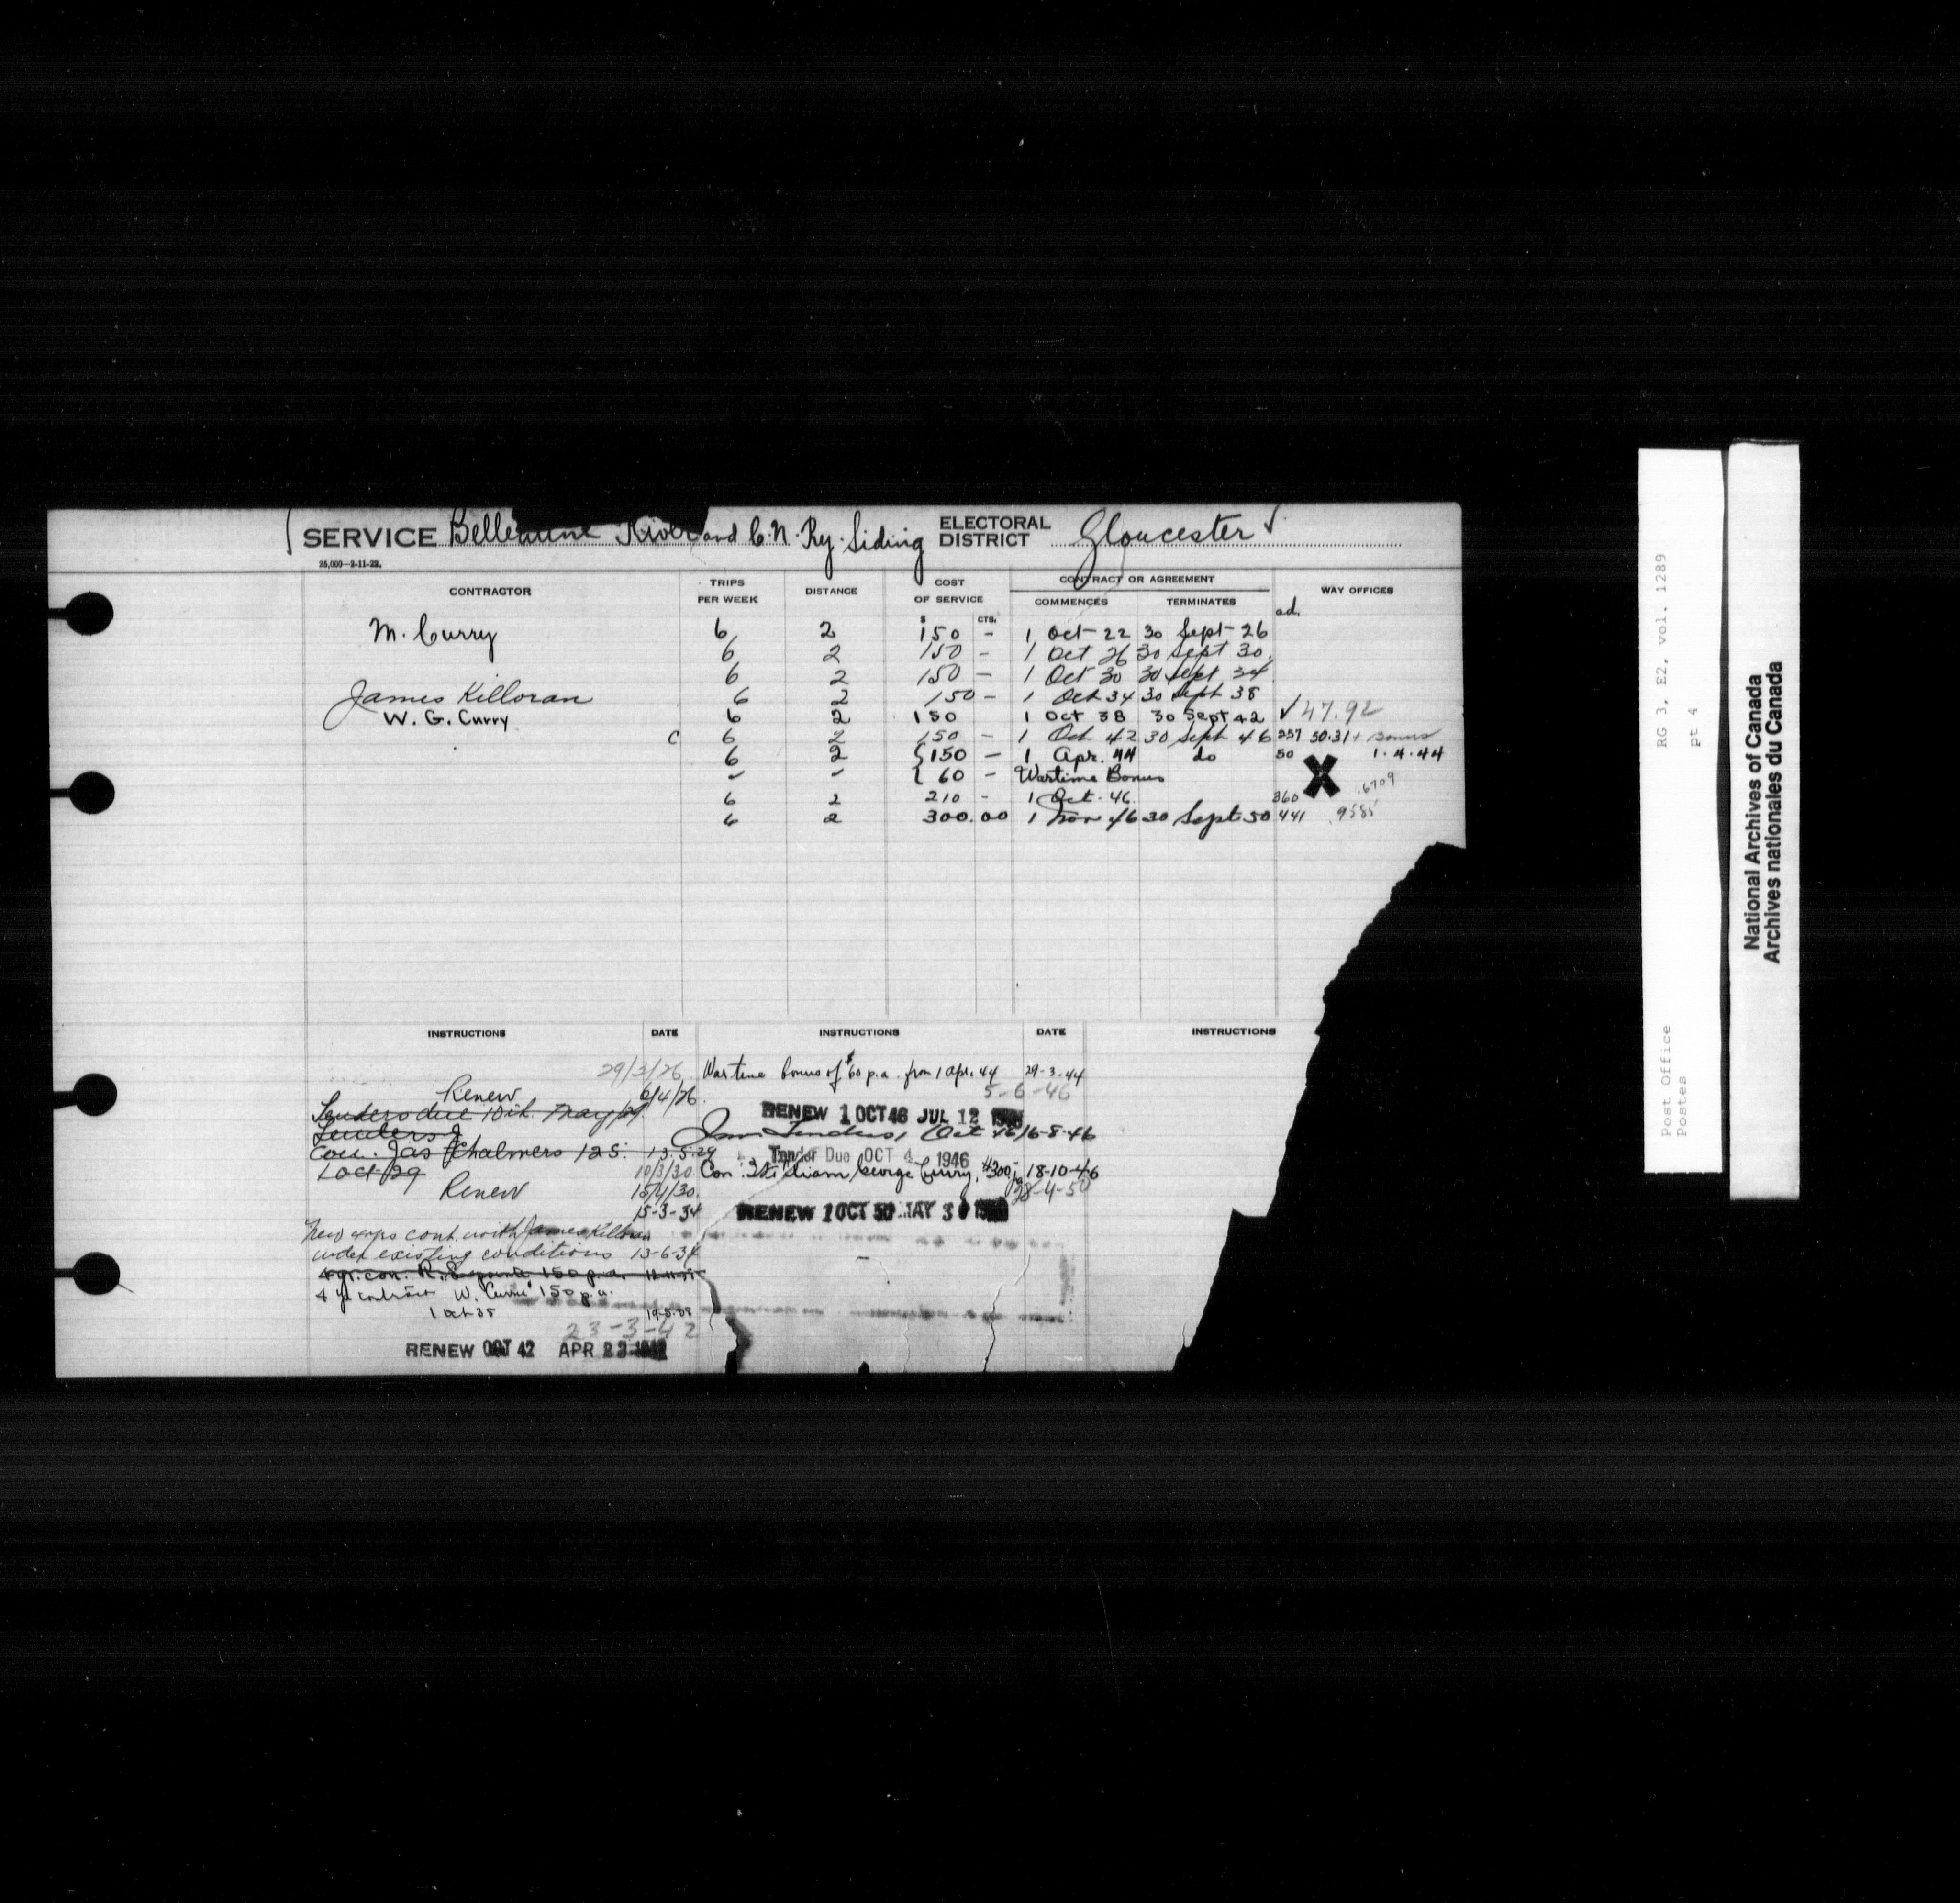 SERVICE Belledune River and C.N. Ry. Siding ELECTORAL DISTRICT Gloucester
25,000—2-11-22.
CONTRACTOR TRIPS PER WEEK DISTANCE COST OF SERVICE CONTRACT OR AGREEMENT WAY OFFICES
COMMENCES TERMINATES
$ CTS. ad.
M. Curry 6 2 150 - 1 Oct 22 30 Sept 26
6 2 150 - 1 Oct 26 30 Sept 30
6 2 150 - 1 Oct 30 30 Sept 34
James Killoran 6 2 150 - 1 Oct 34 30 Sept 38
W. G. Curry 6 2 150 1 Oct 38 30 Sept 42 ✓47.92
C 6 2 150 - 1 Oct 42 30 Sept 46 257 50.31 + Bonus
6 2 {150 - 1 Apr. 44 do 50 1.4.44
" " { 60 - Wartime Bonus X
6 2 210 - 1 Oct. 46. 360 .6709
6 2 300.00 1 Nov 46 30 Sept 50 441 .9585
INSTRUCTIONS DATE INSTRUCTIONS DATE INSTRUCTIONS
29/3/26
Renew 6/4/26.
Tenders due 10th May/29
Tenders
Con. Jas Chalmers 125. 13.5.29
1 Oct/29 10/3/30
Renew 15/4/30.
15-3-34
New 4 yrs cont. with James Killoran
under existing conditions 13-6-34
4 yr. con. R. 150 p.a.
4 yr contract W. Currie 150 p.a.
1 Oct 38 19-5-38
23-3-42
RENEW OCT 42 APR 23 1942
Wartime bonus of $60 p.a. from 1 Apr. 44 29-3-44
5-6-46
RENEW 1 OCT 46 JUL 12 1946
Tenders, Oct 46 16-8-46
Tender Due OCT 4 1946
Con. William George Curry, $300 18-10-46
28-4-50
RENEW 1 OCT 50 MAY 30 1950
Post Office RG 3, E2, vol. 1289
Postes pt 4
National Archives of Canada
Archives nationales du Canada